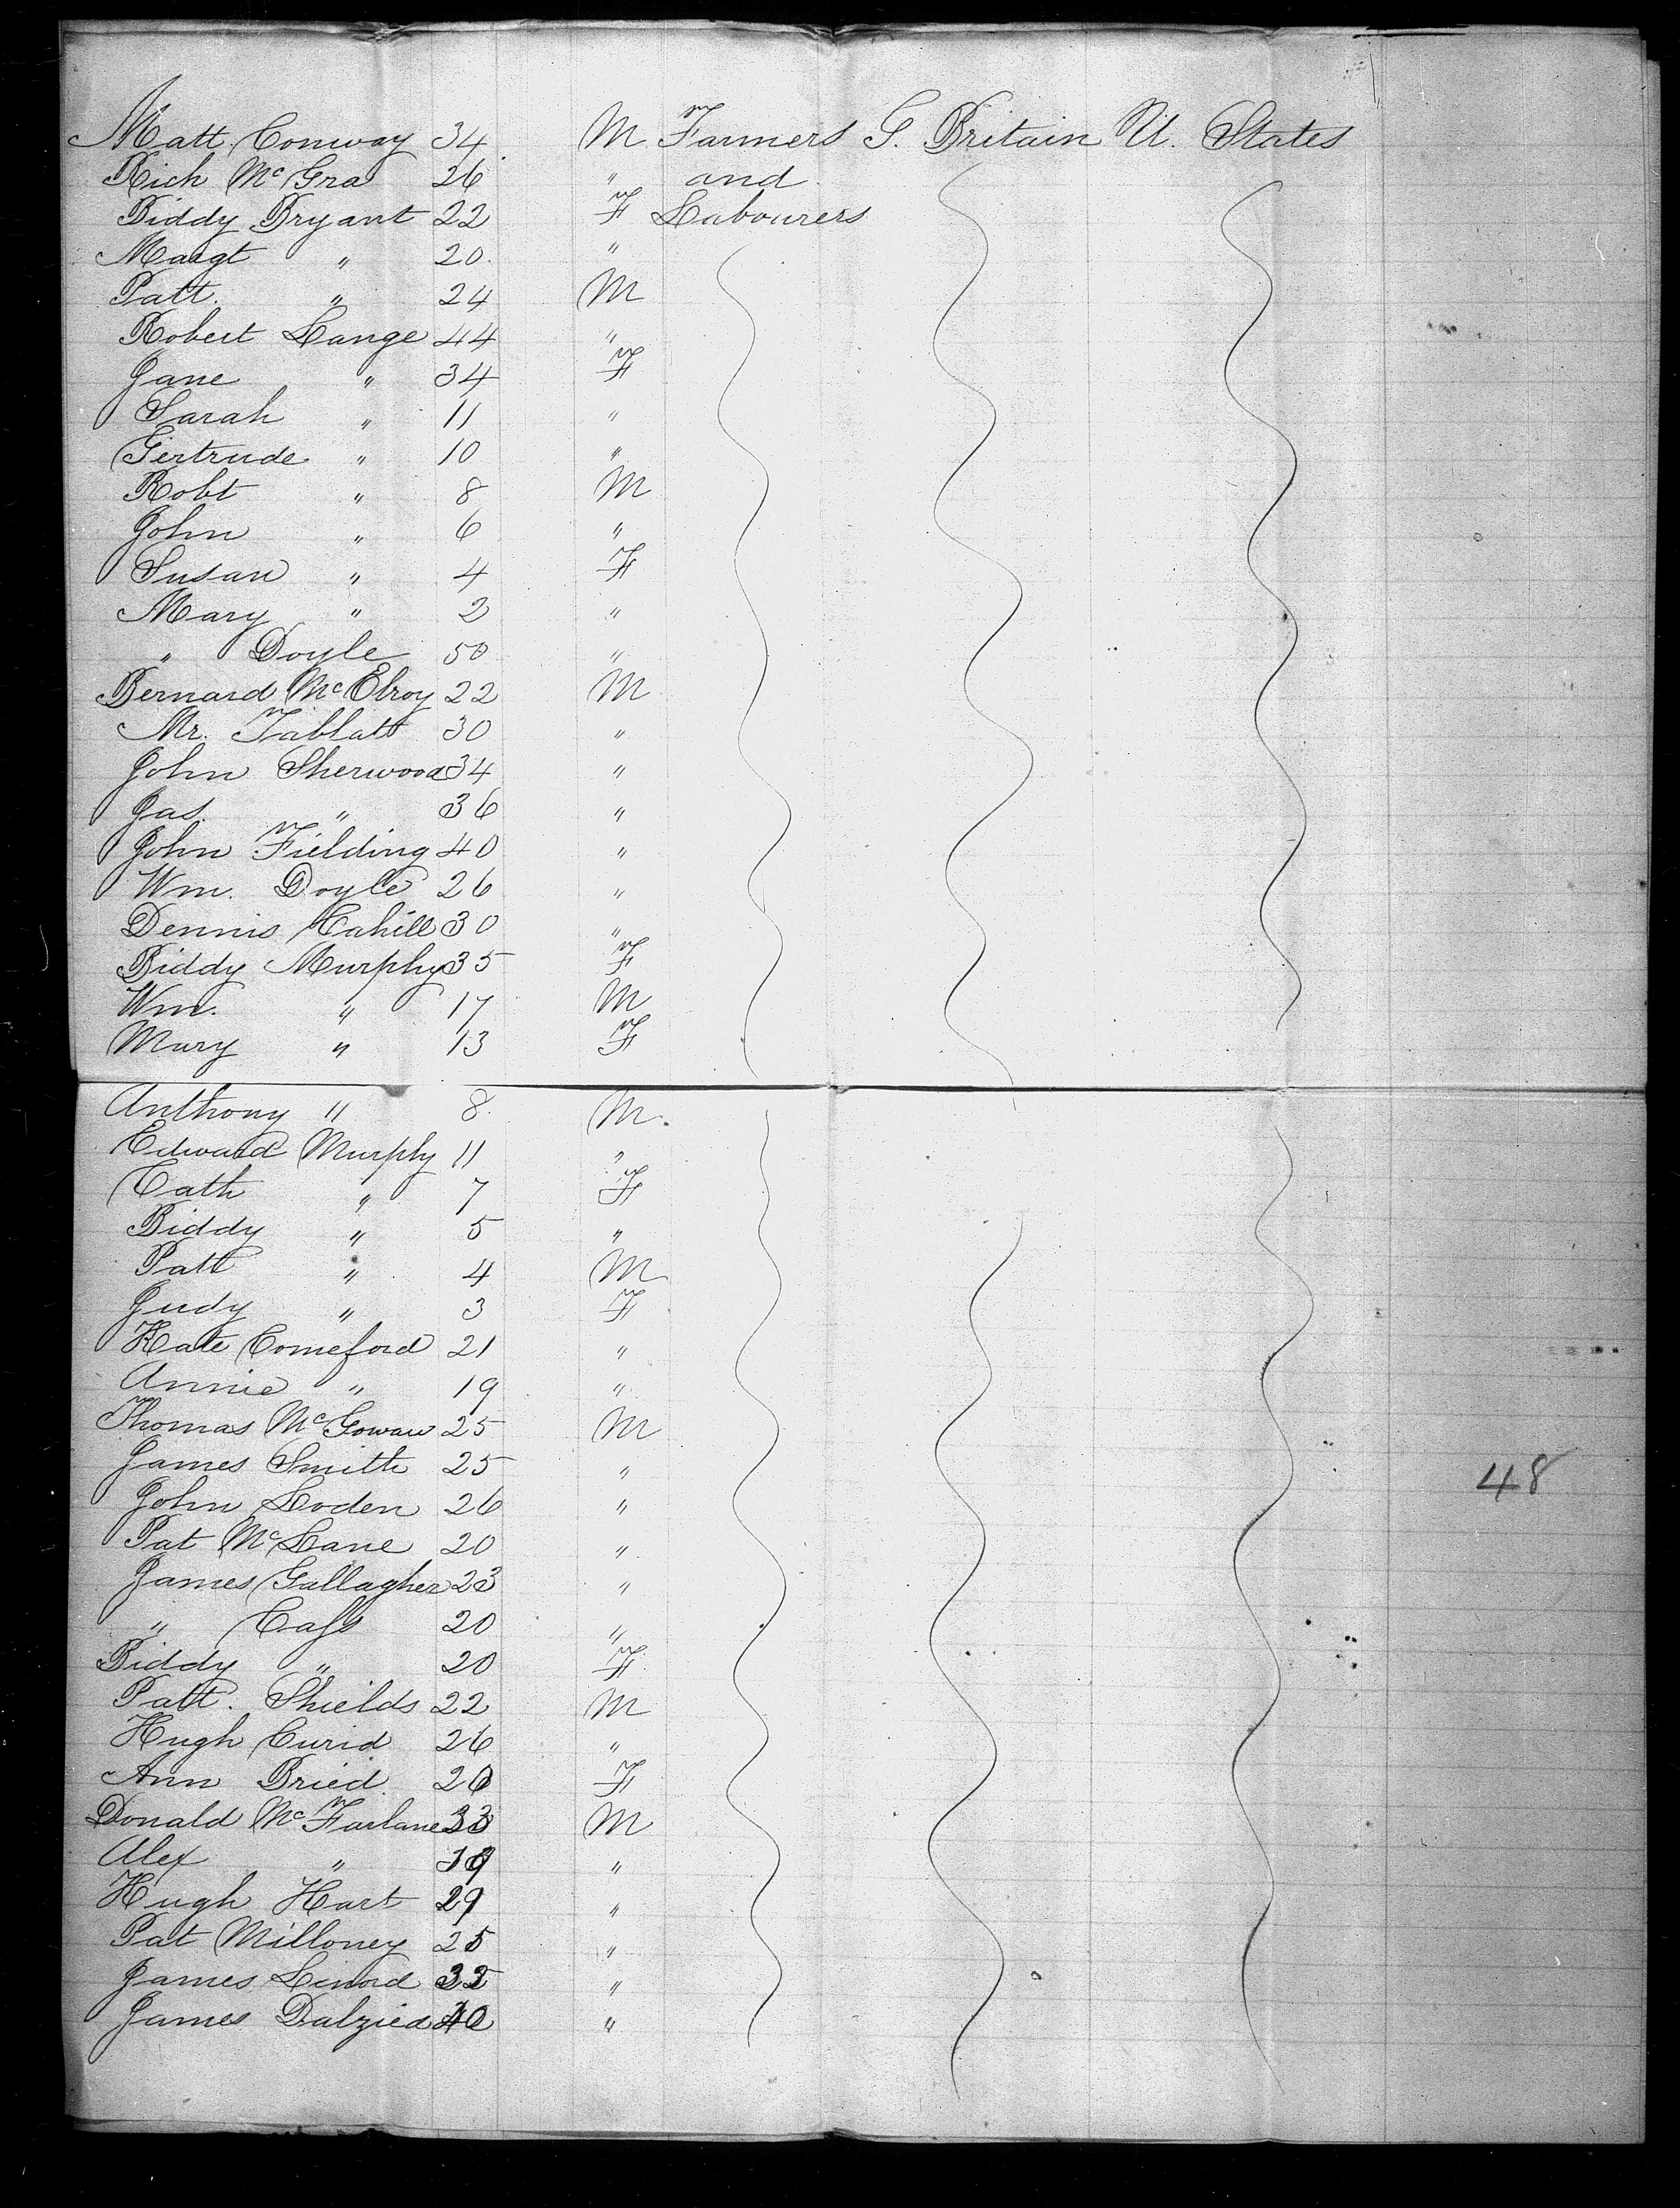 Matt. Conway 34 M Farmers G. Britain U. States
Rich McGra 26 " and
Biddy Bryant 22 F Labourers
Margt " 20 "
Patt. " 24 M
Robert Lange 44 "
Jane " 34 F
Sarah " 11 "
Gertrude " 10 "
Robt " 8 M
John " 6 "
Susan " 4 F
Mary " 2 "
" Doyle 50 "
Bernard McElroy 22 M
Mr. Tablatt 30 "
John Sherwood 34 "
Jas. " 36 "
John Fielding 40 "
Wm. Doyle 26 "
Dennis Cahill 30 "
Biddy Murphy 35 F
Wm. " 17 M
Mary " 13 F
Anthony " 8 M.
Edward Murphy 11 "
Cath " 7 F
Biddy " 5 "
Patt " 4 M
Judy " 3 F
Kate Comeford 21 "
Annie " 19 "
Thomas McGowan 25 M
James Smith 25 " 48
John Loden 26 "
Pat McLane 20 "
James Gallagher 23 "
" Cass 20 "
Biddy " 20 F
Patt. Shields 22 M
Hugh Curid 26 "
Ann Bried F
Donald McFarlane 33 M
Alex " "
Hugh Hart 29 "
Pat Milloney 25 "
James Linord "
James Dalzied "